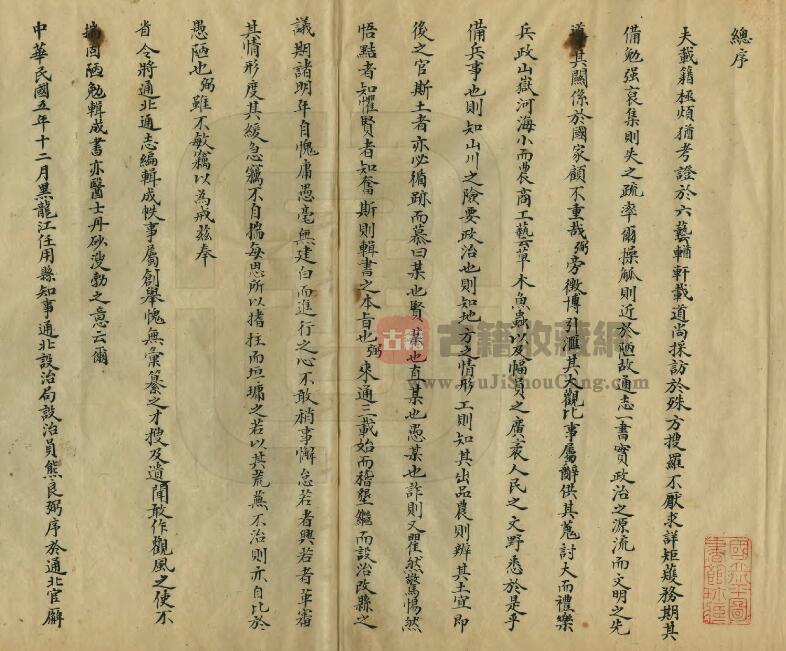 總序
夫載籍極煩猶考證於六藝輶軒載道尚採訪於殊方搜羅不厭求詳矩矱務期其
備勉强裒集則失之疏率爾操觚則近於陋故通志一書實政治之源流而文明之先
導其關係於國家顧不重哉弼旁徵博引滙其大觀比事屬辭供其蒐討大而禮樂
兵政山嶽河海小而農商工藝草木魚蟲以及幅員之廣袤人民之文野悉於是乎
備兵事也則知山川之險要政治也則知地方之情形工則知其出品農則辨其土宜即
後之官斯土者亦必循跡而慕曰某也賢某也直某也愚某也詐則又瞿然驚惕然
悟黠者知懼賢者知奮斯則輯書之本旨也弼來通三載始而稽墾繼而設治改縣之
議期諸明年自愧庸愚毫無建白而進行之心不敢稍事懈怠若者興若者革審
其情形度其緩急竊不自揣每思所以搘拄而垣墉之若以其荒蕪不治則亦自比於
愚陋也弼雖不敏竊以為戒茲奉
省令將通北通志編輯成帙事屬創舉愧無彙纂之才搜及遺聞敢作觀風之使不
揣固陋勉輯成書亦醫士丹砂溲勃之意云爾
中華民國五年十二月黑龍江任用縣知事通北設治局設治員熊良弼序於通北官廨
國立北平圖書館珍藏
古籍收藏網
www.GuJiShouCang.com